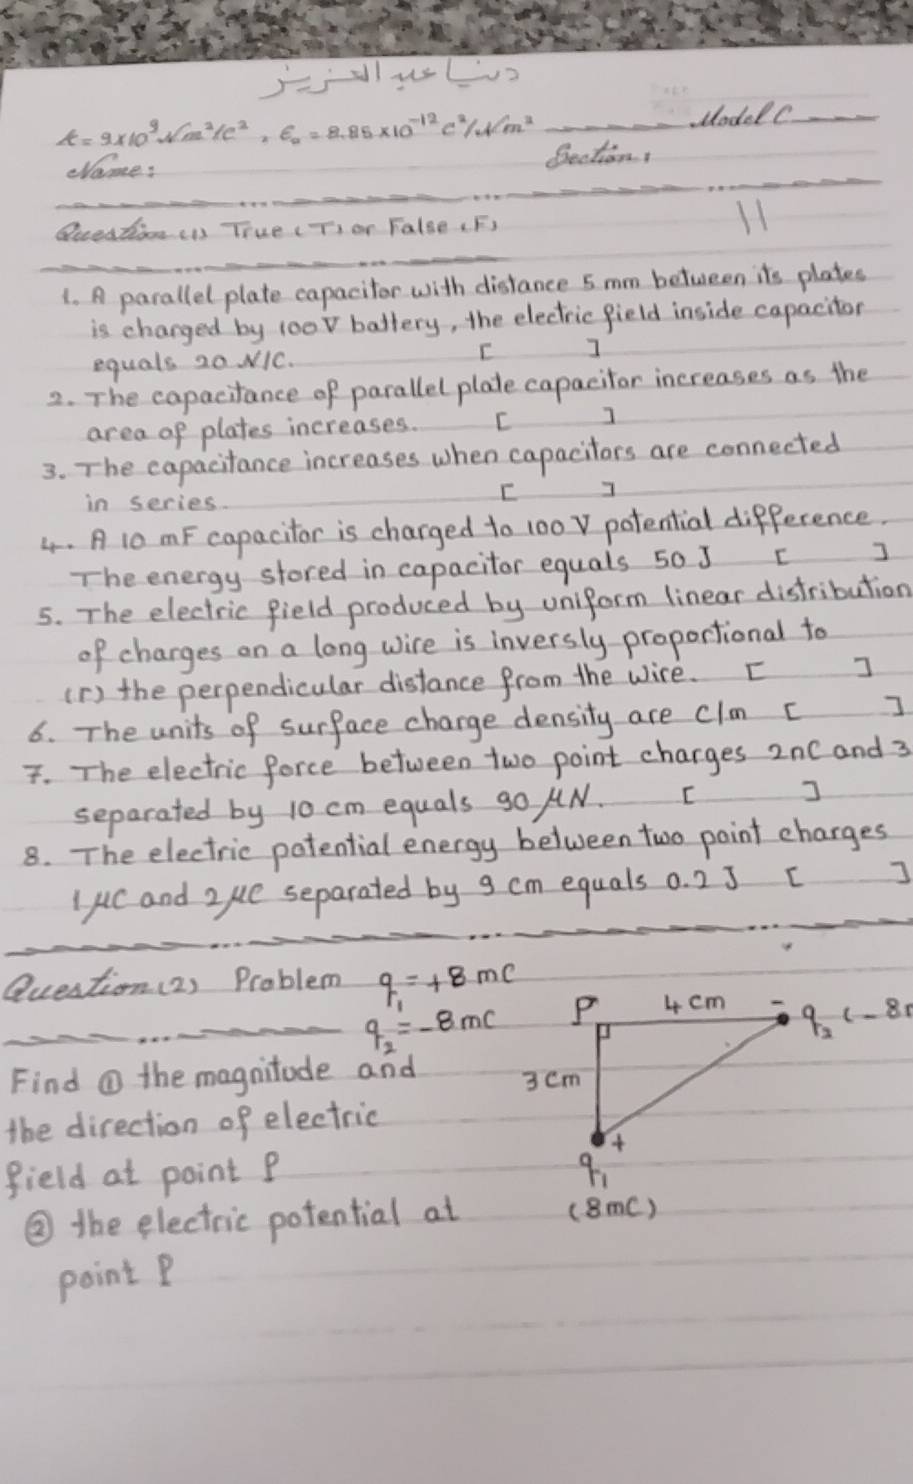 دنيا عبد العزيز
k = 9×10⁹ Nm²/C² , ε₀ = 8.85×10⁻¹² C²/Nm² Model C
Name: Section:
Question (1) True (T) or False (F) 11
1. A parallel plate capacitor with distance 5 mm between its plates
is charged by 100 V battery, the electric field inside capacitor
equals 20 N/C. [ ]
2. The capacitance of parallel plate capacitor increases as the
area of plates increases. [ ]
3. The capacitance increases when capacitors are connected
in series. [ ]
4. A 10 mF capacitor is charged to 100 V potential difference.
The energy stored in capacitor equals 50 J [ ]
5. The electric field produced by uniform linear distribution
of charges on a long wire is inversly proportional to
(r) the perpendicular distance from the wire. [ ]
6. The units of surface charge density are C/m [ ]
7. The electric force between two point charges 2nC and 3
separated by 10 cm equals 90 μN. [ ]
8. The electric potential energy between two point charges
1 μC and 2 μC separated by 9 cm equals 0.2 J [ ]
Question (2) Problem q₁ = +8 mC
q₂ = -8 mC P 4 cm - q₂ (-8
Find ① the magnitude and 3 cm
the direction of electric +
field at point P q₁
② the electric potential at (8mC)
point P